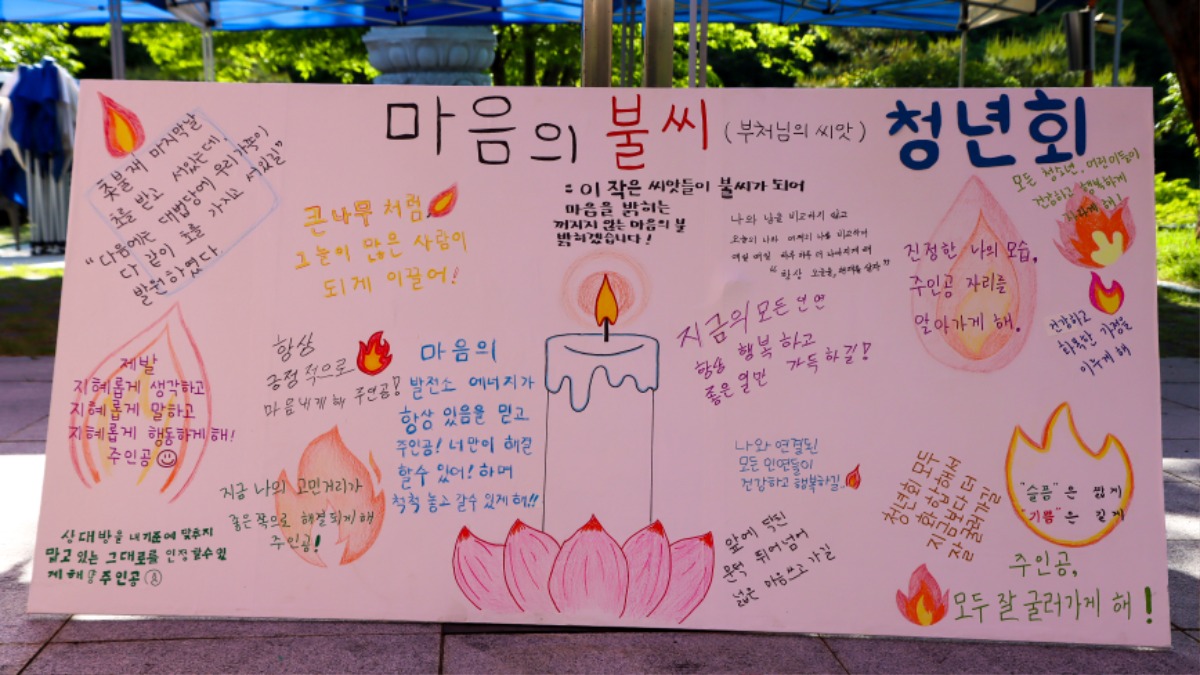 마음의 불씨 (부처님의 씨앗) 청년회
: 이 작은 씨앗들이 불씨가 되어
마음을 밝히는
꺼지지 않는 마음의 불
밝히겠습니다!
촛불재 마지막날
초를 받고 서있는데,
"다음에는 대법당에 우리 가족이
다 같이 초를 가지고 서있길"
발원하였다
큰 나무처럼
그늘이 많은 사람이
되게 이끌어!
나와 남을 비교하지 않고
오늘의 나와 어제의 나를 비교하며
매일 매일 하루하루 더 나아지게 해
모든 청소년, 어린이들이
건강하고 행복하게
자라게 해!
진정한 나의 모습,
주인공 자리를
알아가게 해.
건강하고
화목한 가정을
이루게 해
제발
지혜롭게 생각하고
지혜롭게 말하고
지혜롭게 행동하게 해!
주인공
항상
긍정적으로
마음내게 해 주인공!
마음의
발전소 에너지가
항상 있음을 믿고
주인공! 너만이 해결
할수 있어! 하며
척척 놓고 갈수 있게 해!!
지금의 모든 인연
항상 행복하고
좋은 일만 가득하길!
지금 나의 고민거리가
좋은쪽으로 해결되게 해
주인공!
상대방을 내기준에 맞추지
말고 있는 그대로를 인정할수있
게 해 주인공
나와 연결된
모든 인연들이
건강하고 행복하길..
앞에 닥친
문턱 뛰어넘어
넓은 마음쓰고 가길
청년회 모두
화합해서
지금보다 더
잘 굴러가길
"슬픔"은 짧게
"기쁨"은 길게
주인공,
모두 잘 굴러가게 해!